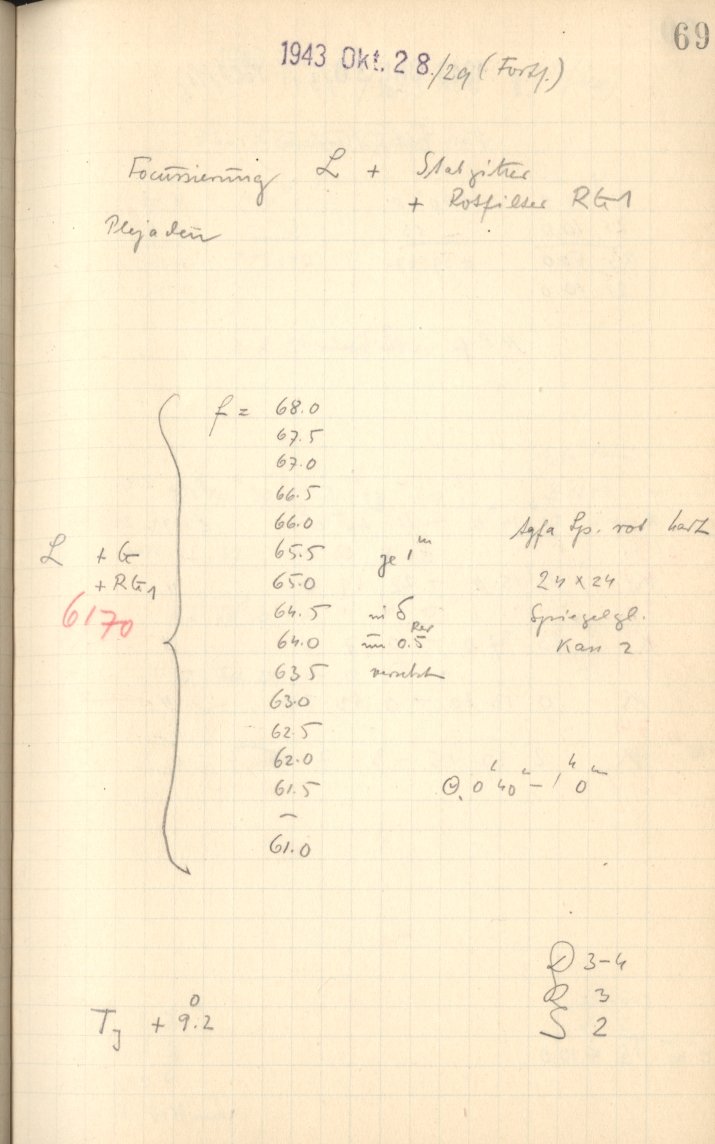 69
1943 Okt. 28./29 (Forts.)
Focussierung L + Stabgitter
+ Rotfilter RG1
Plejaden
f = 68.0
67.5
67.0
66.5
66.0
65.5 je 1m
65.0
64.5 in δ
64.0 um 0.5
63.5 versetzt
63.0
62.5
62.0
61.5
–
61.0
L + G
+ RG1
6170
Agfa Sp. rot hart
24 x 24
Spiegelgl.
Kass 2
0h 40m – 1h 0m
3-4
3
S 2
T + 9.2